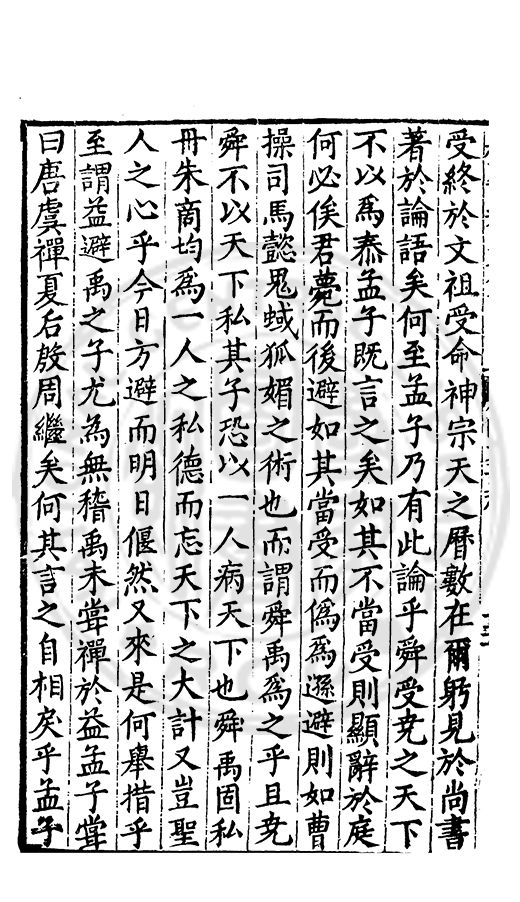 受終於文祖受命神宗天之曆數在爾躬見於尚書
著於論語矣何至孟子乃有此論乎舜受尭之天下
不以爲泰孟子既言之矣如其不當受則顯辭於庭
何必俟君薨而後避如其當受而僞爲遜避則如曹
操司馬懿鬼蜮狐媚之術也而謂舜禹爲之乎且尭
舜不以天下私其子恐以一人病天下也舜禹固私
丹朱商均爲一人之私德而忘天下之大計又豈聖
人之心乎今日方避而明日偃然又來是何舉措乎
至謂益避禹之子尤為無稽禹未甞禪於益孟子甞
曰唐虞禪夏后殷周繼矣何其言之自相戾乎孟子